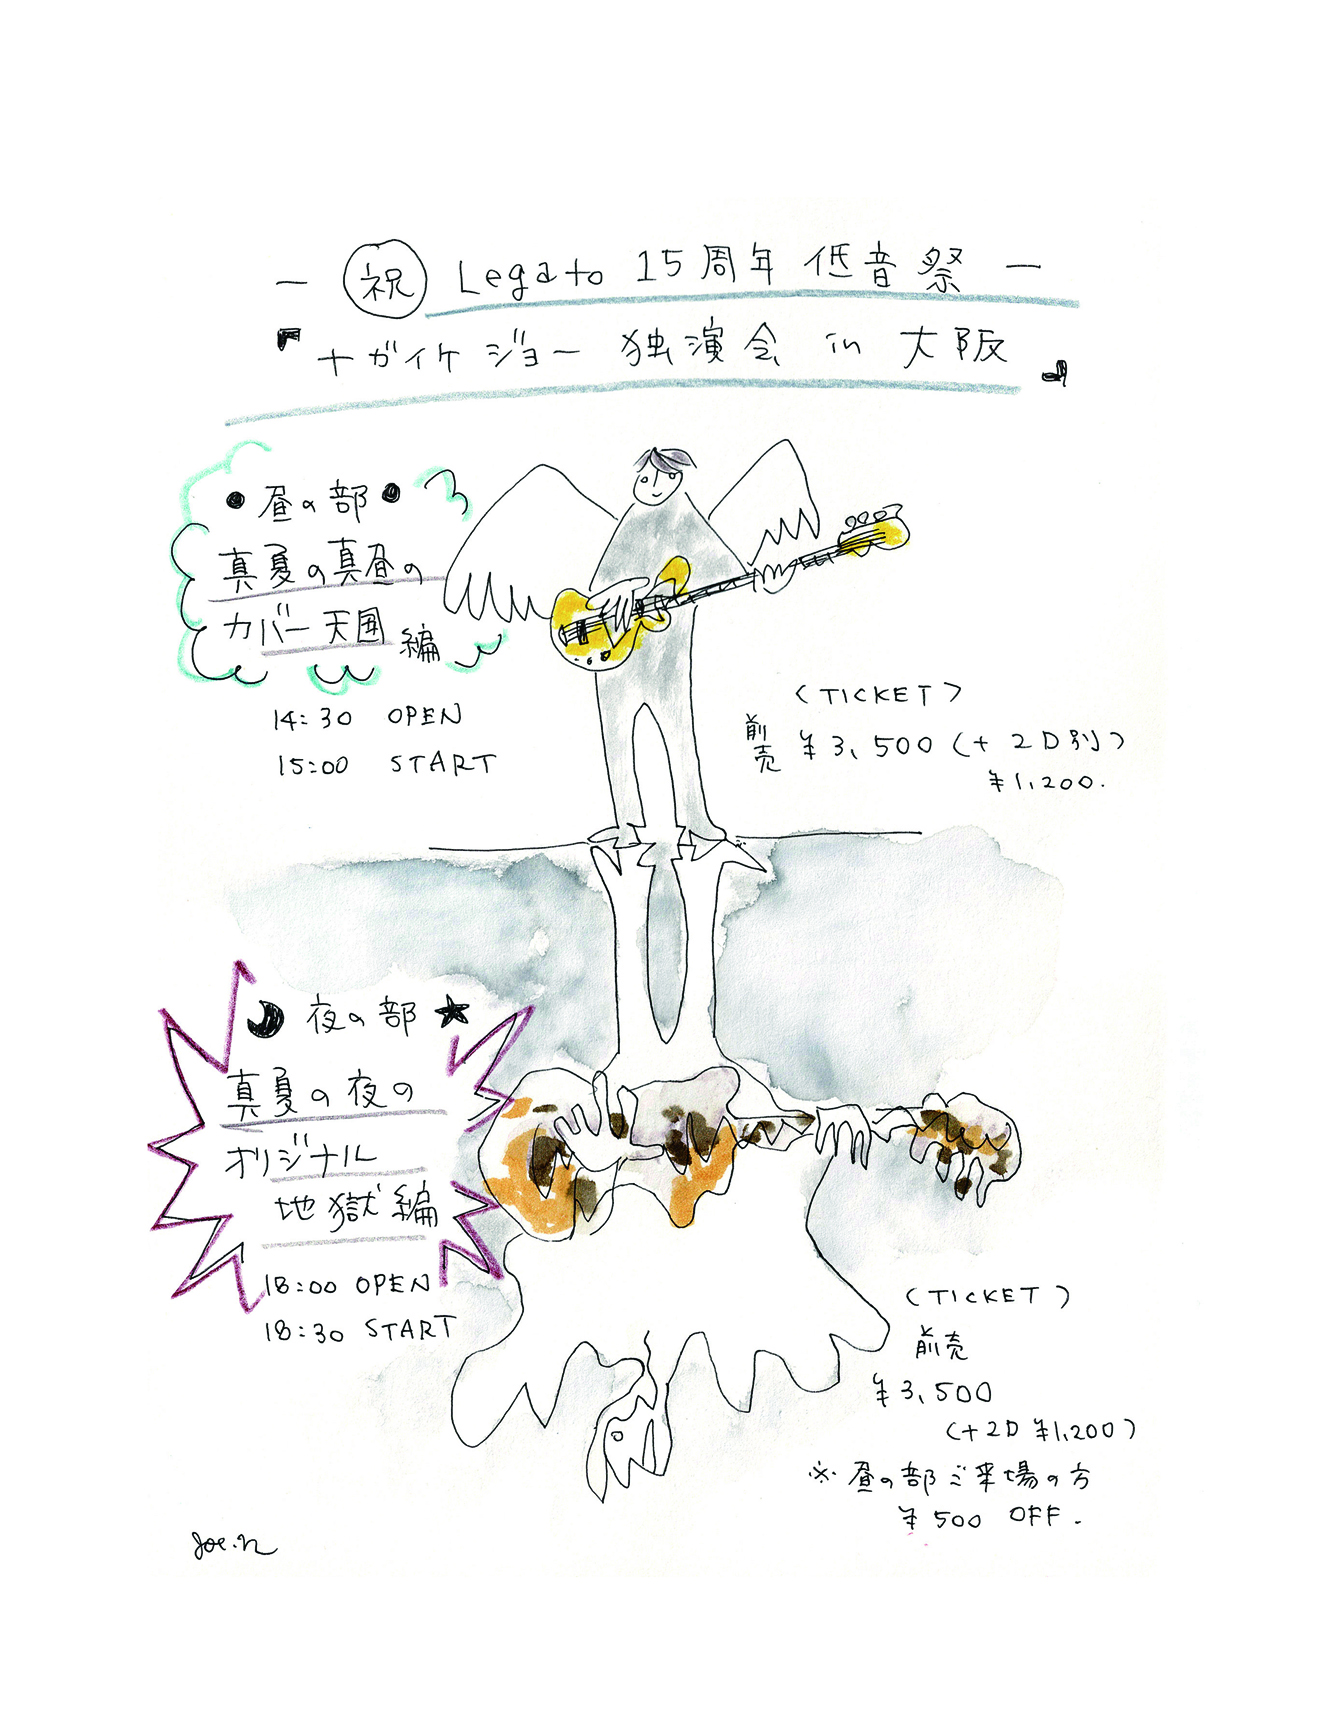 — 祝 Legato 15周年 低音祭 —
『ナガイケジョー 独演会 in 大阪』
●昼の部●
真夏の真昼の
カバー天国編
14:30 OPEN
15:00 START
(TICKET)
前売 ¥3,500 (+2D別)
¥1,200.
夜の部★
真夏の夜の
オリジナル
地獄編
18:00 OPEN
18:30 START
(TICKET)
前売
¥3,500
(+2D ¥1,200)
※昼の部ご来場の方
¥500 OFF.
Joe.n